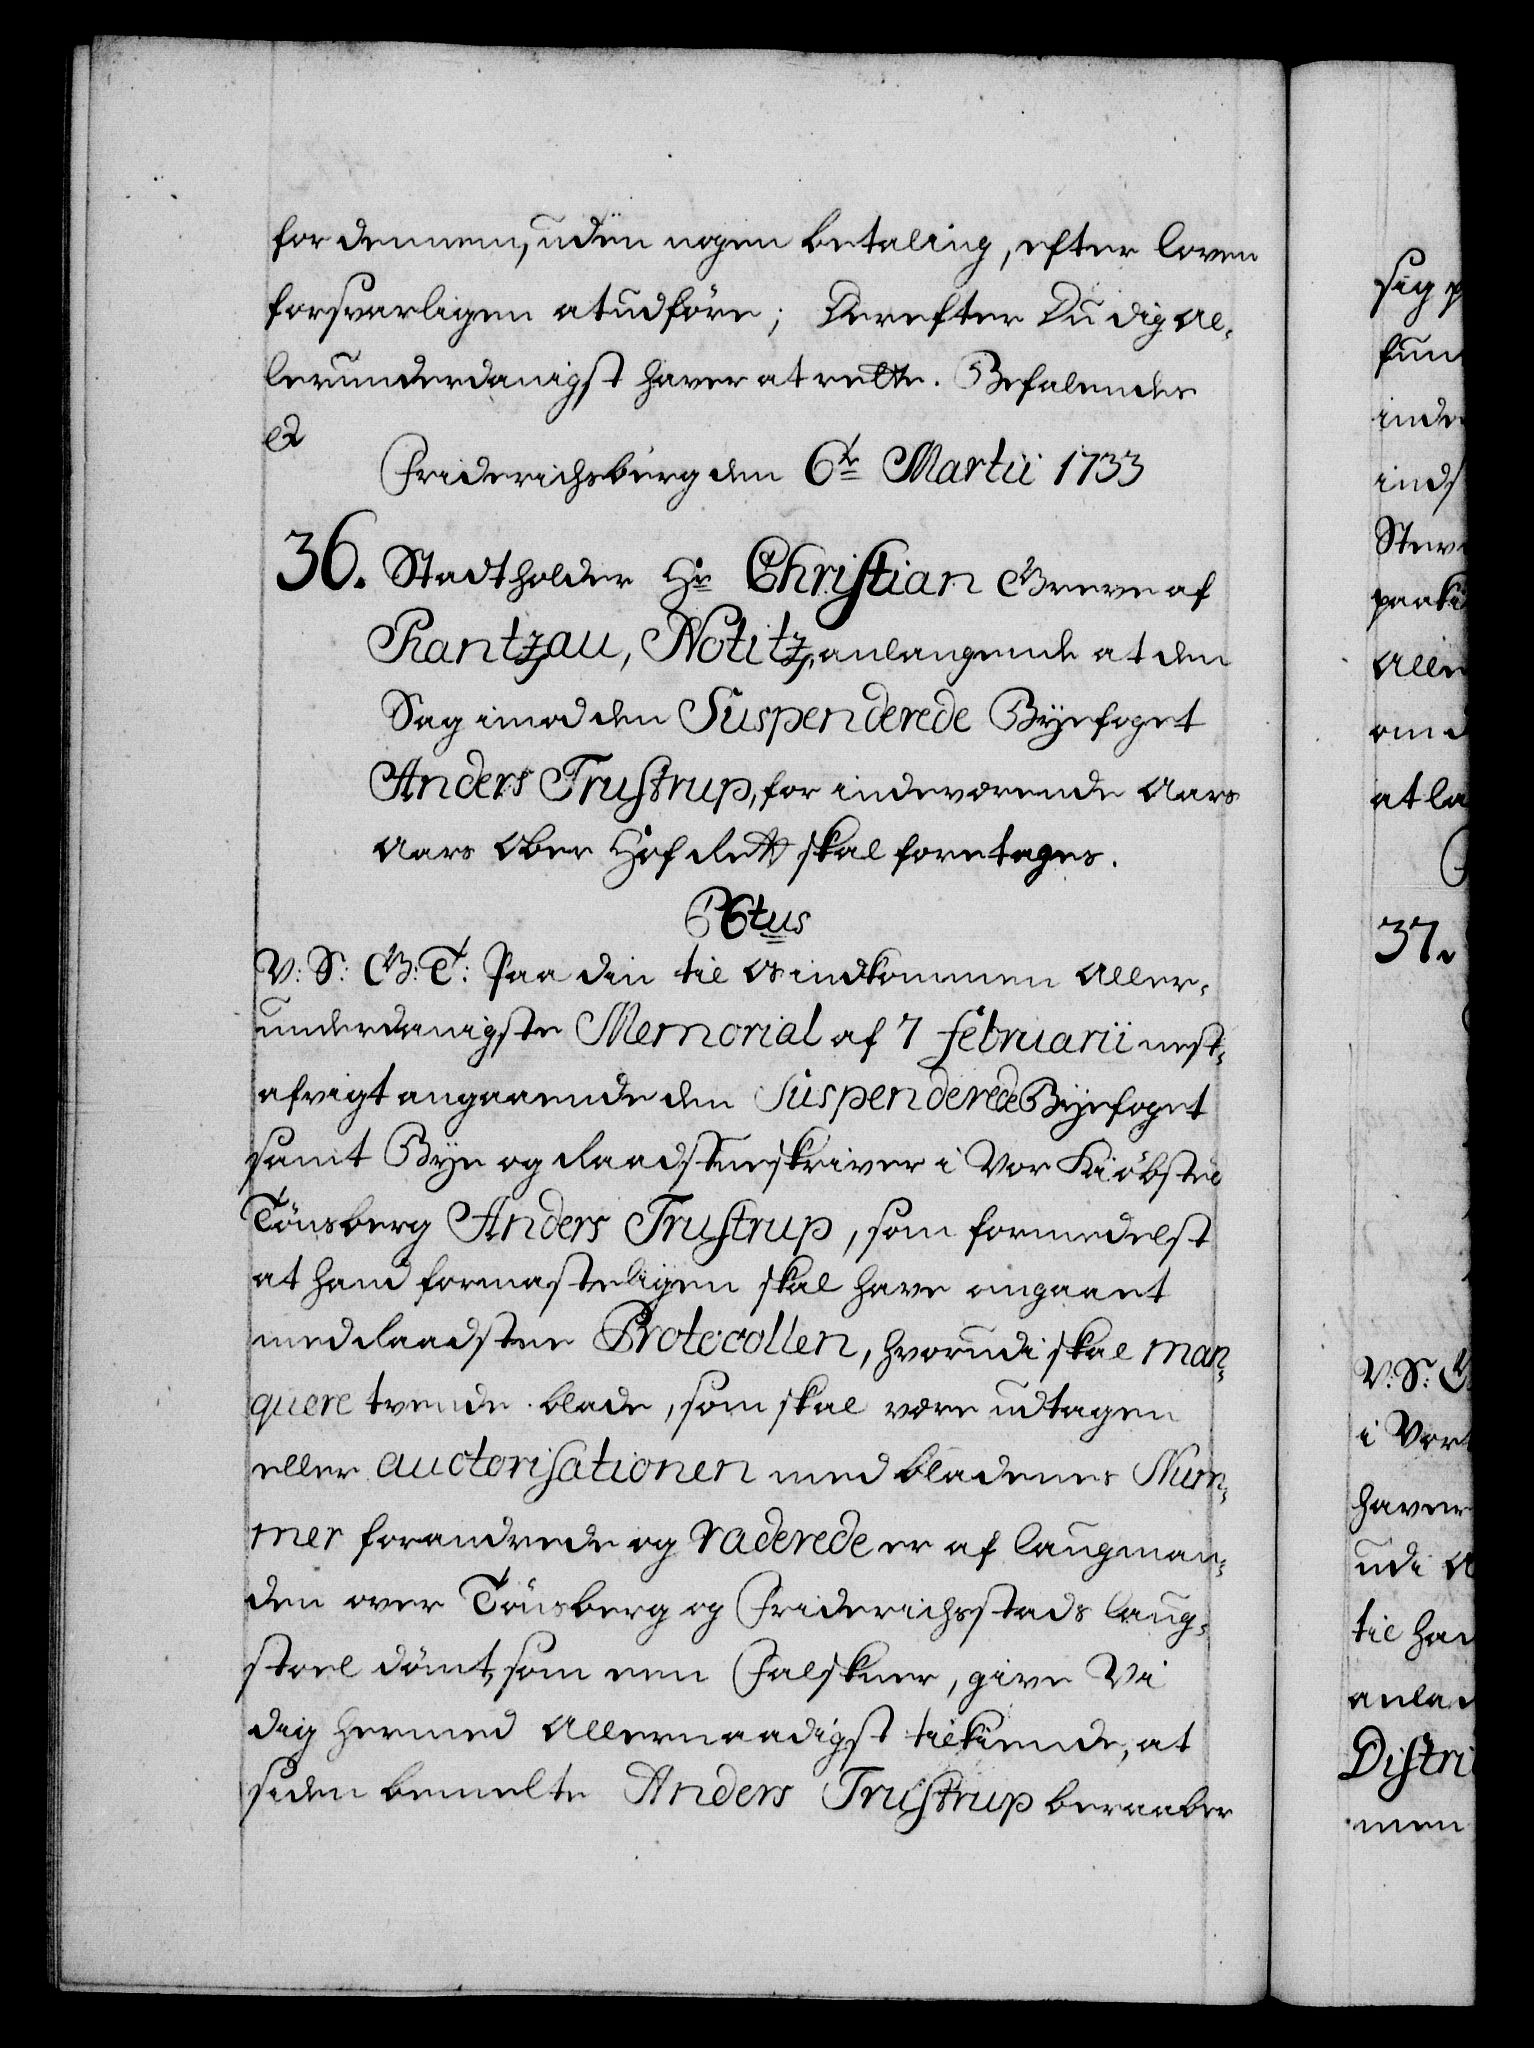 for dennem, uden nogen betaling, efter loven
forsvarligen at udføre; Derefter Du dig al-
lerunderdanigst haver at rette. Befalendes
&
Friderichsburg den 6te Martii 1733
36. Stadtholder Hr Christian Greve af
Rantzau, Notitz, anlangende at den
Sag imod den Suspenderede Byefoget
Anders Trustrup, for indeværende Aars
Aars Ober Hof Rett skal foretages.
C6tus
V: S: G: T: Paa din til Os indkommen Aller-
underdanigste Memorial af 7 februarii nest-
afvigt angaaende den Suspenderede Byefoget
samt Bye og Raadstueskriver i Vor Kiöbsted
Tönsberg Anders Trustrup, som formedelst
at hand formasteligen skal have omgaaet
med Raadstue Protocollen, hvorudi skal man-
quere tvende blade, som skal være udtagen
eller auctorisationen med bladenes Num-
mer forandrede og raderede er af Laugman-
den over Tönsberg og Friderichsstads Laug-
stoel dömt, som een Falskner, give Vi
dig hermed Allernaadigst tilkiende, at
siden bemelte Anders Trustrup beraaber
sig p
fun
inde
inds
Stev
paaki
Alle
om d
at la
37.
V: S: G
i Vor
haver
udi A
til han
anlad
Distri
men